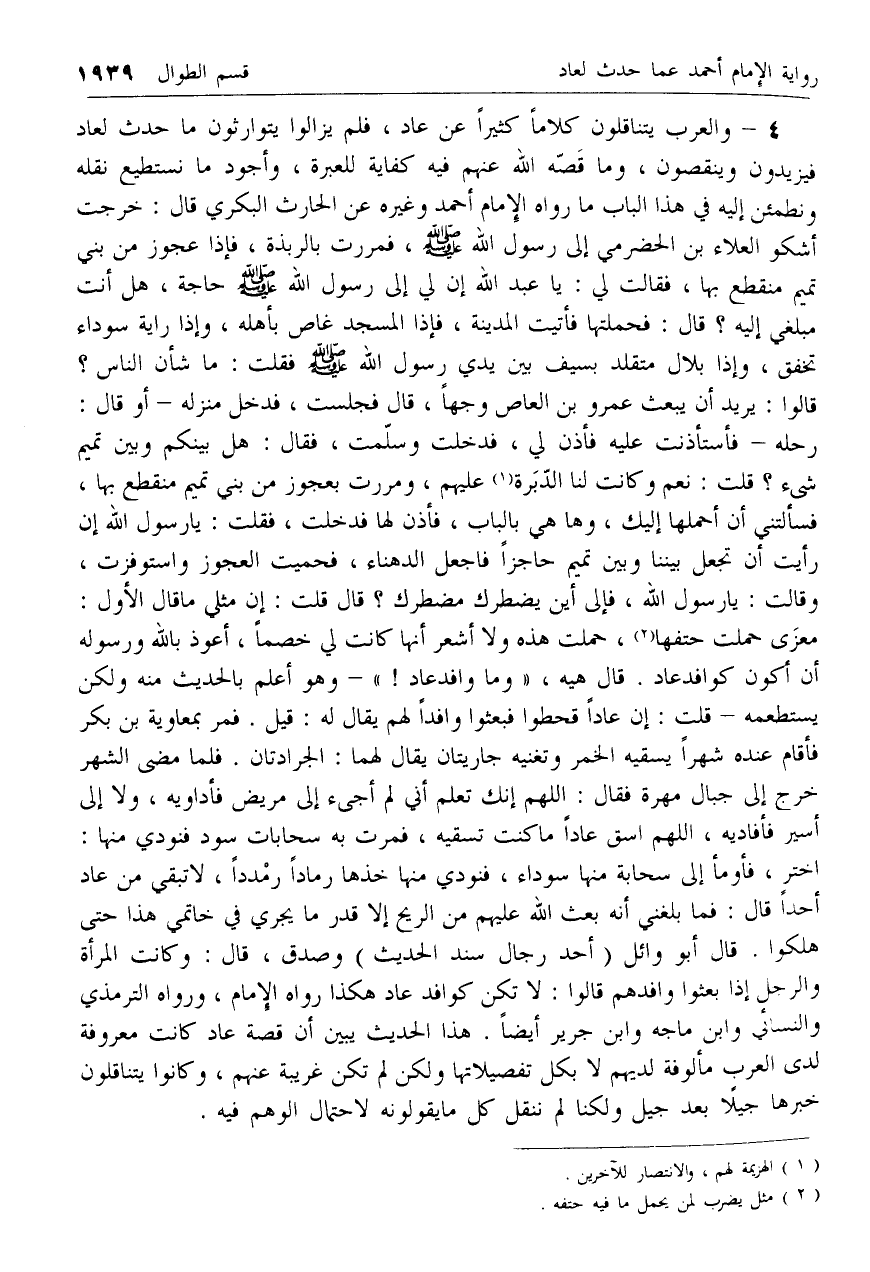 رواية الإمام أحمد عما حدث لعاد قسم الطوال ١٩٣٩
٤ – والعرب يتناقلون كلاماً كثيراً عن عاد ، فلم يزالوا يتوارثون ما حدث لعاد
فيزيدون وينقصون ، وما قَصّه الله عنهم فيه كفاية للعبرة ، وأجود ما نستطيع نقله
ونطمئن إليه في هذا الباب ما رواه الإمام أحمد وغيره عن الحارث البكري قال : خرجت
أشكو العلاء بن الحضرمي إلى رسول الله ﷺ ، فمررت بالربذة ، فإذا عجوز من بني
تميم منقطع بها ، فقالت لي : يا عبد الله إن لي إلى رسول الله ﷺ حاجة ، هل أنت
مبلغي إليه ؟ قال : فحملتها فأتيت المدينة ، فإذا المسجد غاص بأهله ، وإذا راية سوداء
تخفق ، وإذا بلال متقلد بسيف بين يدي رسول الله ﷺ فقلت : ما شأن الناس ؟
قالوا : يريد أن يبعث عمرو بن العاص وجهاً ، قال فجلست ، فدخل منزله – أو قال :
رحله – فأستأذنت عليه فأذن لي ، فدخلت وسلّمت ، فقال : هل بينكم وبين تميم
شىء ؟ قلت : نعم وكانت لنا الدّبَرة(١) عليهم ، ومررت بعجوز من بني تميم منقطع بها ،
فسألتني أن أحملها إليك ، وها هي بالباب ، فأذن لها فدخلت ، فقلت : يارسول الله إن
رأيت أن تجعل بيننا وبين تميم حاجزاً فاجعل الدهناء ، فحميت العجوز واستوفزت ،
وقالت : يارسول الله ، فإلى أين يضطرك مضطرك ؟ قال قلت : إن مثلي ماقال الأول :
معزَى حملت حتفها(٢) ، حملت هذه ولا أشعر أنها كانت لي خصماً ، أعوذ بالله ورسوله
أن أكون كوافدعاد . قال هيه ، « وما وافدعاد ! » – وهو أعلم بالحديث منه ولكن
يستطعمه – قلت : إن عاداً قحطوا فبعثوا وافداً لهم يقال له : قيل . فمر بمعاوية بن بكر
فأقام عنده شهراً يسقيه الخمر وتغنيه جاريتان يقال لهما : الجرادتان . فلما مضى الشهر
خرج إلى جبال مهرة فقال : اللهم إنك تعلم أني لم أجىء إلى مريض فأداويه ، ولا إلى
أسير فأفاديه ، اللهم اسق عاداً ماكنت تسقيه ، فمرت به سحابات سود فنودي منها :
اختر ، فأومأ إلى سحابة منها سوداء ، فنودي منها خذها رماداً رمْدداً ، لاتبقي من عاد
أحداً قال : فما بلغني أنه بعث الله عليهم من الريح إلا قدر ما يجري في خاتمي هذا حتى
هلكوا . قال أبو وائل ( أحد رجال سند الحديث ) وصدق ، قال : وكانت المرأة
والرجل إذا بعثوا وافدهم قالوا : لا تكن كوافد عاد هكذا رواه الإمام ، ورواه الترمذي
والنسائي وابن ماجه وابن جرير أيضاً . هذا الحديث يبين أن قصة عاد كانت معروفة
لدى العرب مألوفة لديهم لا بكل تفصيلاتها ولكن لم تكن غريبة عنهم ، وكانوا يتناقلون
خبرها جيلًا بعد جيل ولكنا لم ننقل كل مايقولونه لاحتمال الوهم فيه .
( ١ ) الهزيمة لهم ، والانتصار للآخرين .
( ٢ ) مثل يضرب لمن يحمل ما فيه حتفه .